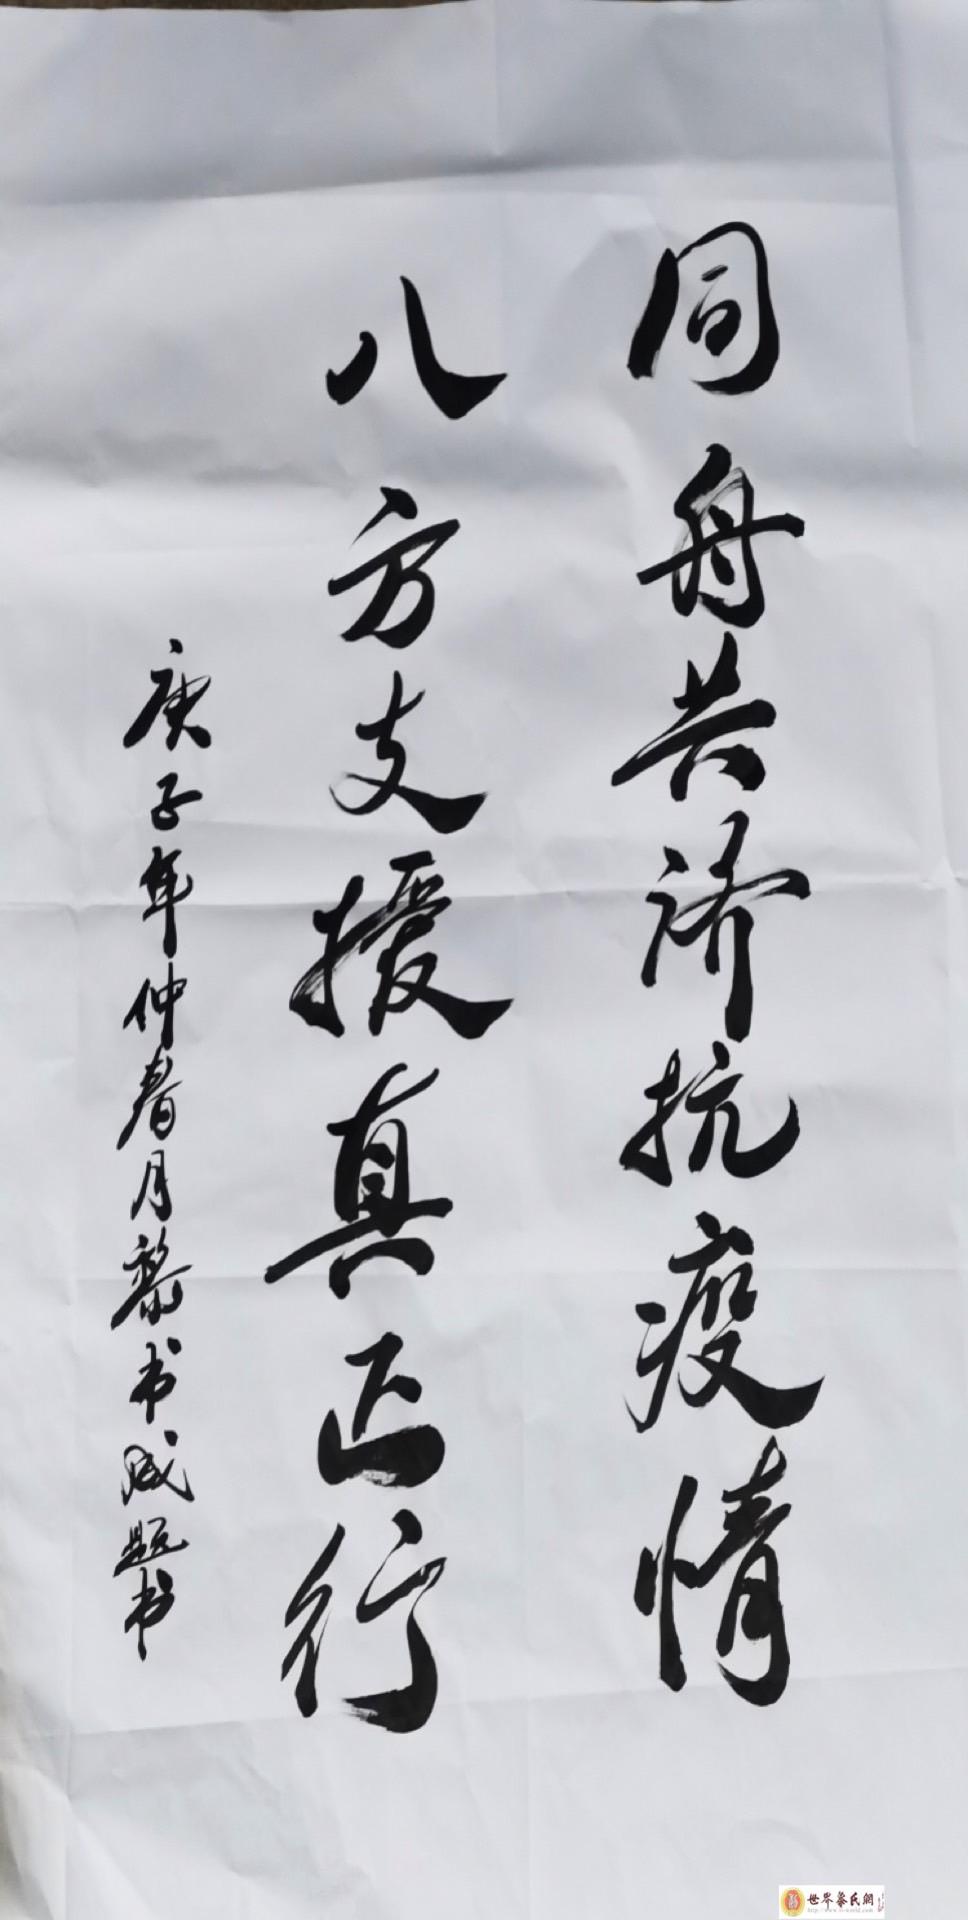 同舟共济抗疫情
八方支援真正行
庚子年仲春月黎书成题书
世界黎氏網